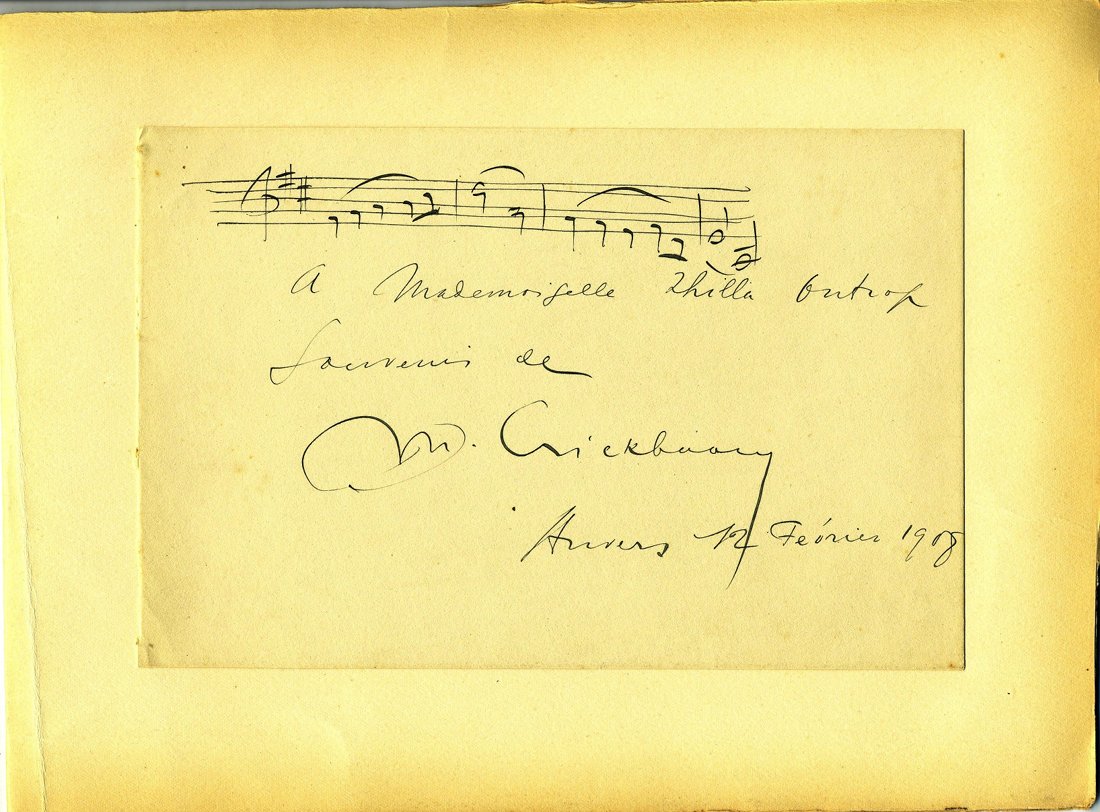 A Mademoiselle Zhilla Ontrop
Souvenir de
M. Crickboom
Anvers 12 Février 1908